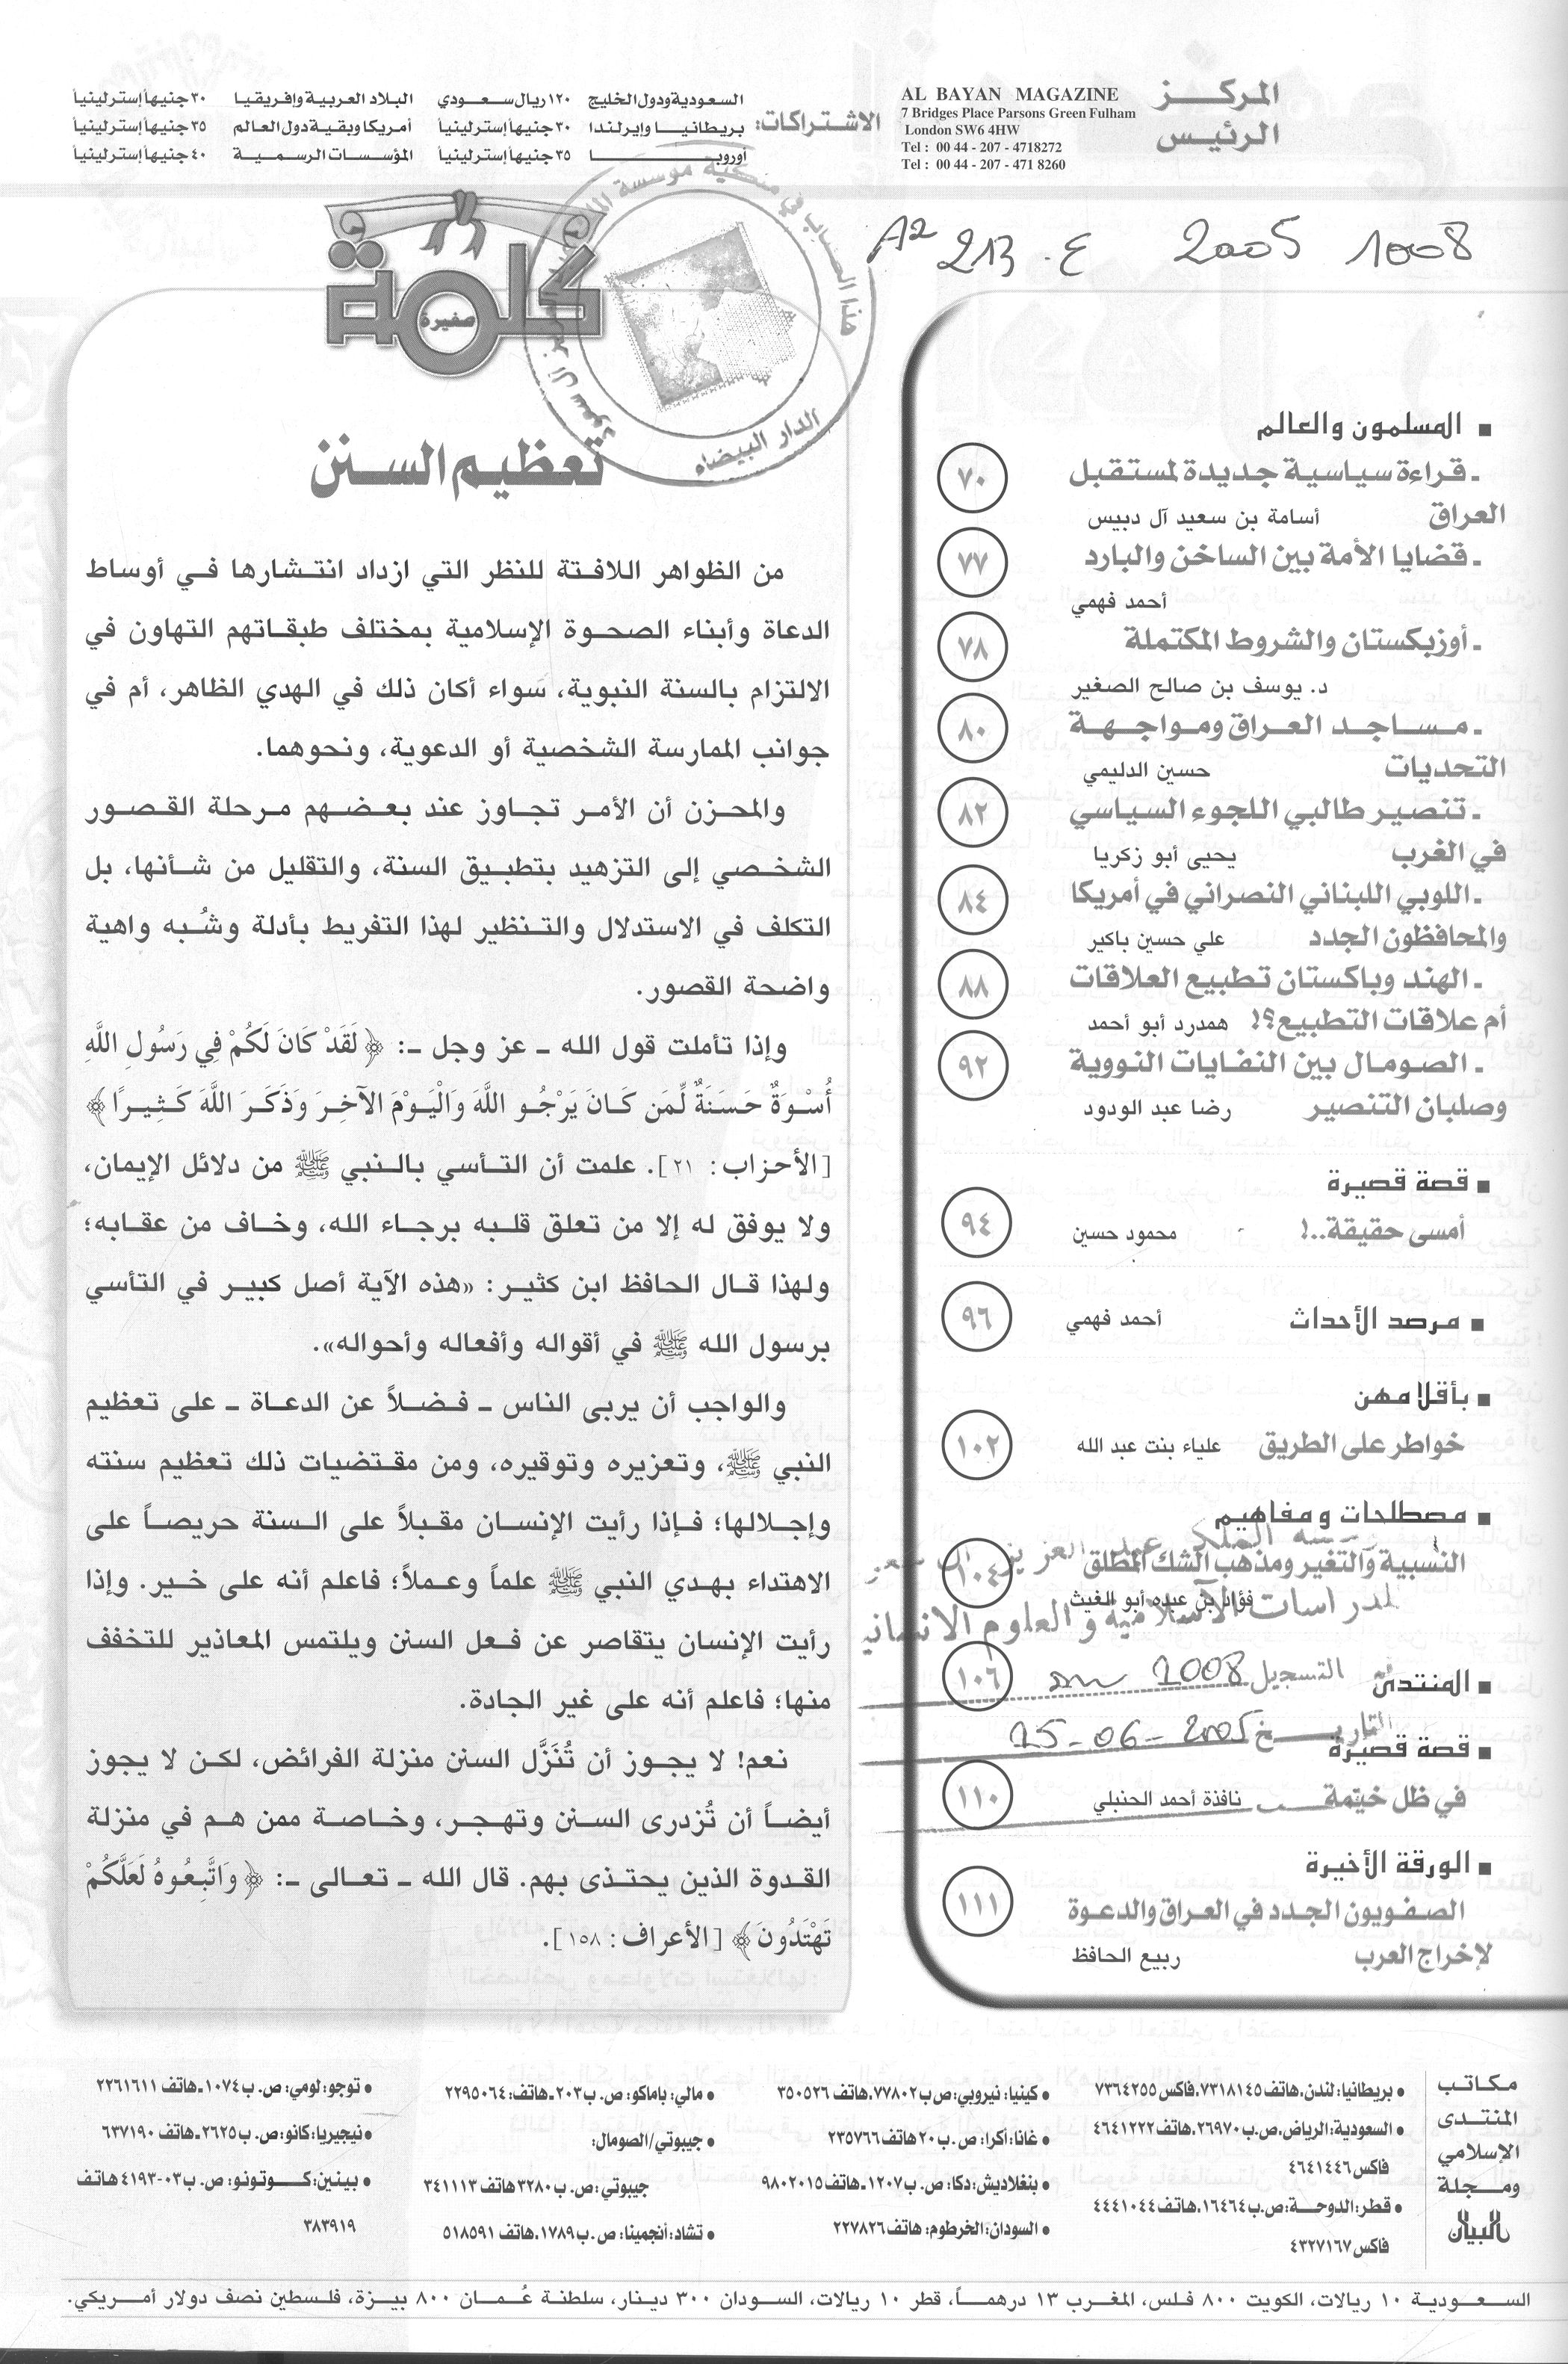 المركز
الرئيس
AL BAYAN MAGAZINE
7 Bridges Place Parsons Green Fulham
London SW6 4HW
Tel : 00 44 - 207 - 4718272
Tel : 00 44 - 207 - 471 8260
الاشتراكات:
السعودية ودول الخليج ١٢٠ ريال سعودي البلاد العربية وإفريقيا ٣٠ جنيهاً إسترلينياً
بريطانيا وإيرلندا ٣٠ جنيهاً إسترلينياً أمريكا وبقية دول العالم ٣٥ جنيهاً إسترلينياً
أوروبا ٣٥ جنيهاً إسترلينياً المؤسسات الرسمية ٤٠ جنيهاً إسترلينياً
A2 213 .ع 2005 1008
■ المسلمون والعالم
ـ قراءة سياسية جديدة لمستقبل ٧٠
العراق أسامة بن سعيد آل دبيس
ـ قضايا الأمة بين الساخن والبارد ٧٧
أحمد فهمي
ـ أوزبكستان والشروط المكتملة ٧٨
د. يوسف بن صالح الصغير
ـ مساجد العراق ومواجهة ٨٠
التحديات حسين الدليمي
ـ تنصير طالبي اللجوء السياسي ٨٢
في الغرب يحيى أبو زكريا
ـ اللوبي اللبناني النصراني في أمريكا ٨٤
والمحافظون الجدد علي حسين باكير
ـ الهند وباكستان تطبيع العلاقات ٨٨
أم علاقات التطبيع؟! همدرد أبو أحمد
ـ الصومال بين النفايات النووية ٩٢
وصلبان التنصير رضا عبد الودود
■ قصة قصيرة
أمسى حقيقة..! محمود حسين ٩٤
■ مرصد الأحداث أحمد فهمي ٩٦
■ بأقلامهن
خواطر على الطريق علياء بنت عبد الله ١٠٢
■ مصطلحات ومفاهيم
النسبية والتغير ومذهب الشك المطلق ١٠٤
فؤاد بن عبده أبو الغيث
للدراسات الاسلامية و العلوم الانسانية
■ المنتدى ١٠٦
التسجيل 1008
التاريخ 15-06-2005
■ قصة قصيرة
في ظل خيتمة نافذة أحمد الحنبلي ١١٠
■ الورقة الأخيرة
الصفويون الجدد في العراق والدعوة ١١١
لإخراج العرب ربيع الحافظ
كلمة
صغيرة
الدار البيضاء
تعظيم السنن
من الظواهر اللافتة للنظر التي ازداد انتشارها في أوساط
الدعاة وأبناء الصحوة الإسلامية بمختلف طبقاتهم التهاون في
الالتزام بالسنة النبوية، سواء أكان ذلك في الهدي الظاهر، أم في
جوانب الممارسة الشخصية أو الدعوية، ونحوهما.
والمحزن أن الأمر تجاوز عند بعضهم مرحلة القصور
الشخصي إلى التزهيد بتطبيق السنة، والتقليل من شأنها، بل
التكلف في الاستدلال والتنظير لهذا التفريط بأدلة وشُبه واهية
واضحة القصور.
وإذا تأملت قول الله ـ عز وجل ـ: ﴿لَقَدْ كَانَ لَكُمْ فِي رَسُولِ اللَّهِ
أُسْوَةٌ حَسَنَةٌ لِّمَن كَانَ يَرْجُو اللَّهَ وَالْيَوْمَ الآخِرَ وَذَكَرَ اللَّهَ كَثِيرًا﴾
[الأحزاب: ٢١]. علمت أن التأسي بالنبي ﷺ من دلائل الإيمان،
ولا يوفق له إلا من تعلق قلبه برجاء الله، وخاف من عقابه؛
ولهذا قال الحافظ ابن كثير: «هذه الآية أصل كبير في التأسي
برسول الله ﷺ في أقواله وأفعاله وأحواله».
والواجب أن يربى الناس ـ فضلاً عن الدعاة ـ على تعظيم
النبي ﷺ، وتعزيره وتوقيره، ومن مقتضيات ذلك تعظيم سنته
وإجلالها؛ فإذا رأيت الإنسان مقبلاً على السنة حريصاً على
الاهتداء بهدي النبي ﷺ علماً وعملاً؛ فاعلم أنه على خير. وإذا
رأيت الإنسان يتقاصر عن فعل السنن ويلتمس المعاذير للتخفف
منها؛ فاعلم أنه على غير الجادة.
نعم! لا يجوز أن تُنَزَّل السنن منزلة الفرائض، لكن لا يجوز
أيضاً أن تُزدرى السنن وتهجر، وخاصة ممن هم في منزلة
القدوة الذين يحتذى بهم. قال الله ـ تعالى ـ: ﴿وَاتَّبِعُوهُ لَعَلَّكُمْ
تَهْتَدُونَ﴾ [الأعراف: ١٥٨].
مكاتب
المنتدى
الإسلامي
ومجلة
البيان
● بريطانيا: لندن، هاتف ٧٣١٨١٤٥، فاكس ٧٣٦٤٢٥٥
● السعودية: الرياض، ص.ب ٢٦٩٧٠، هاتف ٤٦٤١٢٢٢
فاكس ٤٦٤١٤٤٦
● قطر: الدوحة: ص.ب ١٦٤٦٤، هاتف ٤٤٤١٠٤٤
فاكس ٤٣٢٧١٦٧
● كينيا: نيروبي: ص ب ٧٧٨٠٢، هاتف ٣٥٠٥٢٦
● غانا: أكرا: ص. ب ٢٠ هاتف ٢٣٥٧٦٦
● بنغلاديش: دكا: ص. ب ١٢٠٧ـ هاتف ٩٨٠٢٠١٥
● السودان: الخرطوم: هاتف ٢٢٧٨٢٦
● مالي: باماكو: ص. ب ٢٠٣ـ هاتف: ٢٢٩٥٠٦٤
● جيبوتي/الصومال:
جيبوتي: ص. ب ٣٢٨٠ هاتف ٣٤١١١٣
● تشاد: أنجمينا: ص. ب ١٧٨٩، هاتف ٥١٨٥٩١
● توجو: لومي: ص. ب ١٠٧٤ـ هاتف ٢٢٦١٦١١
● نيجيريا: كانو: ص. ب ٢٦٢٥ـ هاتف ٦٣٧١٩٠
● بينين: كوتونو: ص. ب ٠٣-٤١٩٣ هاتف
٣٨٣٩١٩
السعودية ١٠ ريالات، الكويت ٨٠٠ فلس، المغرب ١٣ درهماً، قطر ١٠ ريالات، السودان ٣٠٠ دينار، سلطنة عُمان ٨٠٠ بيزة، فلسطين نصف دولار أمريكي.